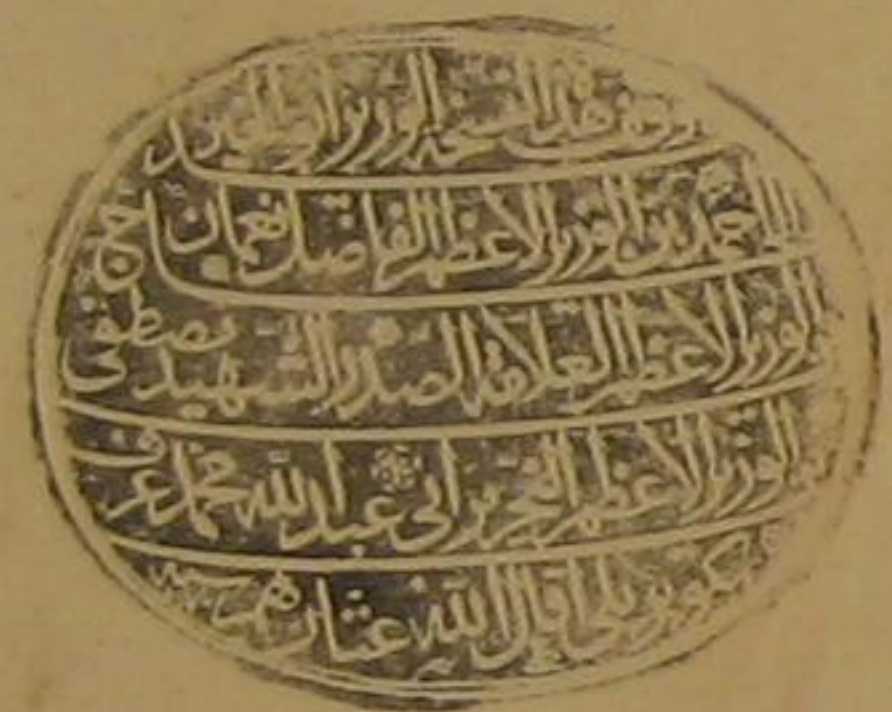 وقف هذه النسخة الوزير أبو العباس
أحمد بن الوزير الأعظم الفاضل نعمان بن
الوزير الأعظم العلامة الصدر الشهيد مصطفى
الوزير الأعظم النحرير أبي عبد الله محمد عرف
بكوبريلي أقال الله عثارهم